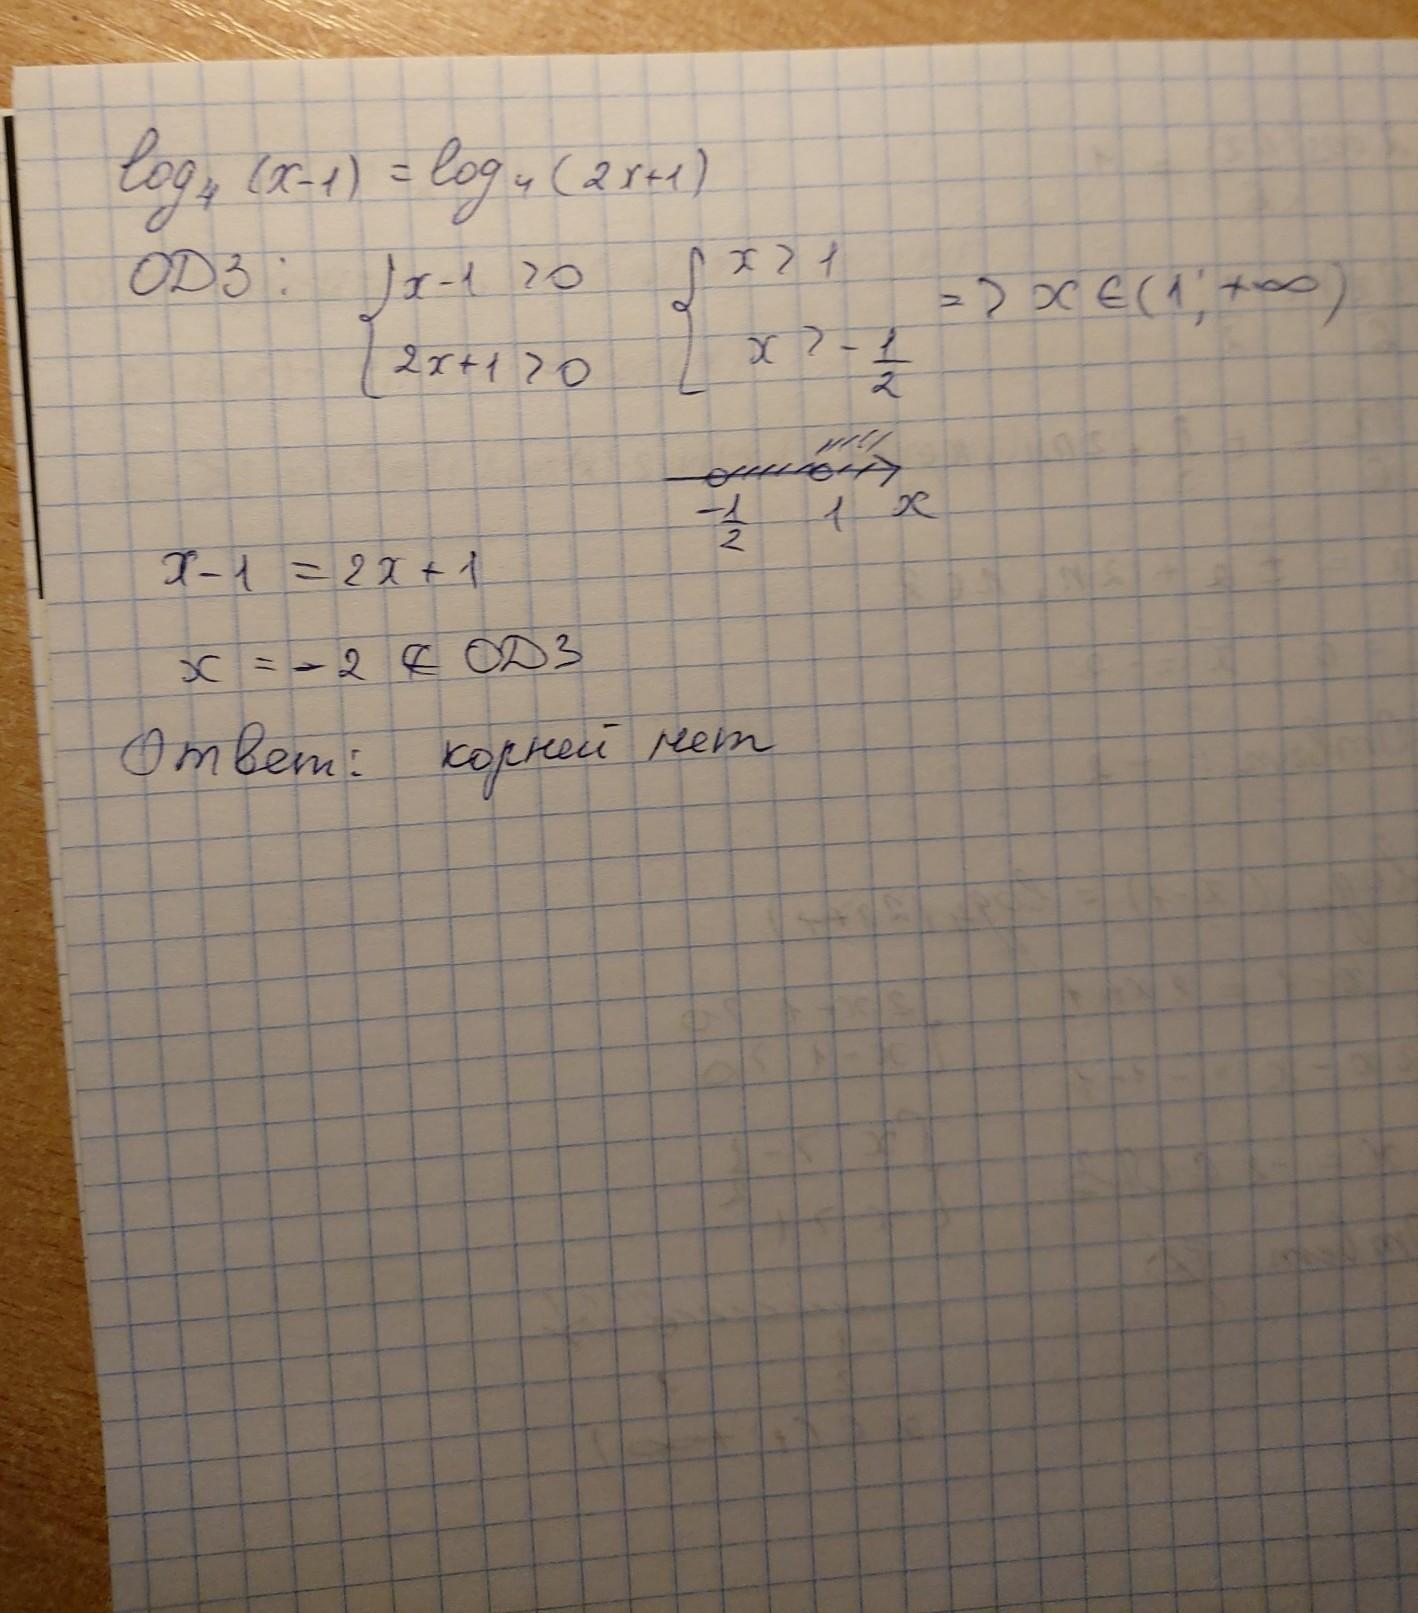 log₄ (x-1) = log₄ (2x+1)
ОДЗ: { x-1 > 0 { x > 1 => x ∈ (1; +∞)
2x+1 > 0 x > -1/2
-1/2 1 x
x-1 = 2x+1
x = -2 ∉ ОДЗ
Ответ: корней нет